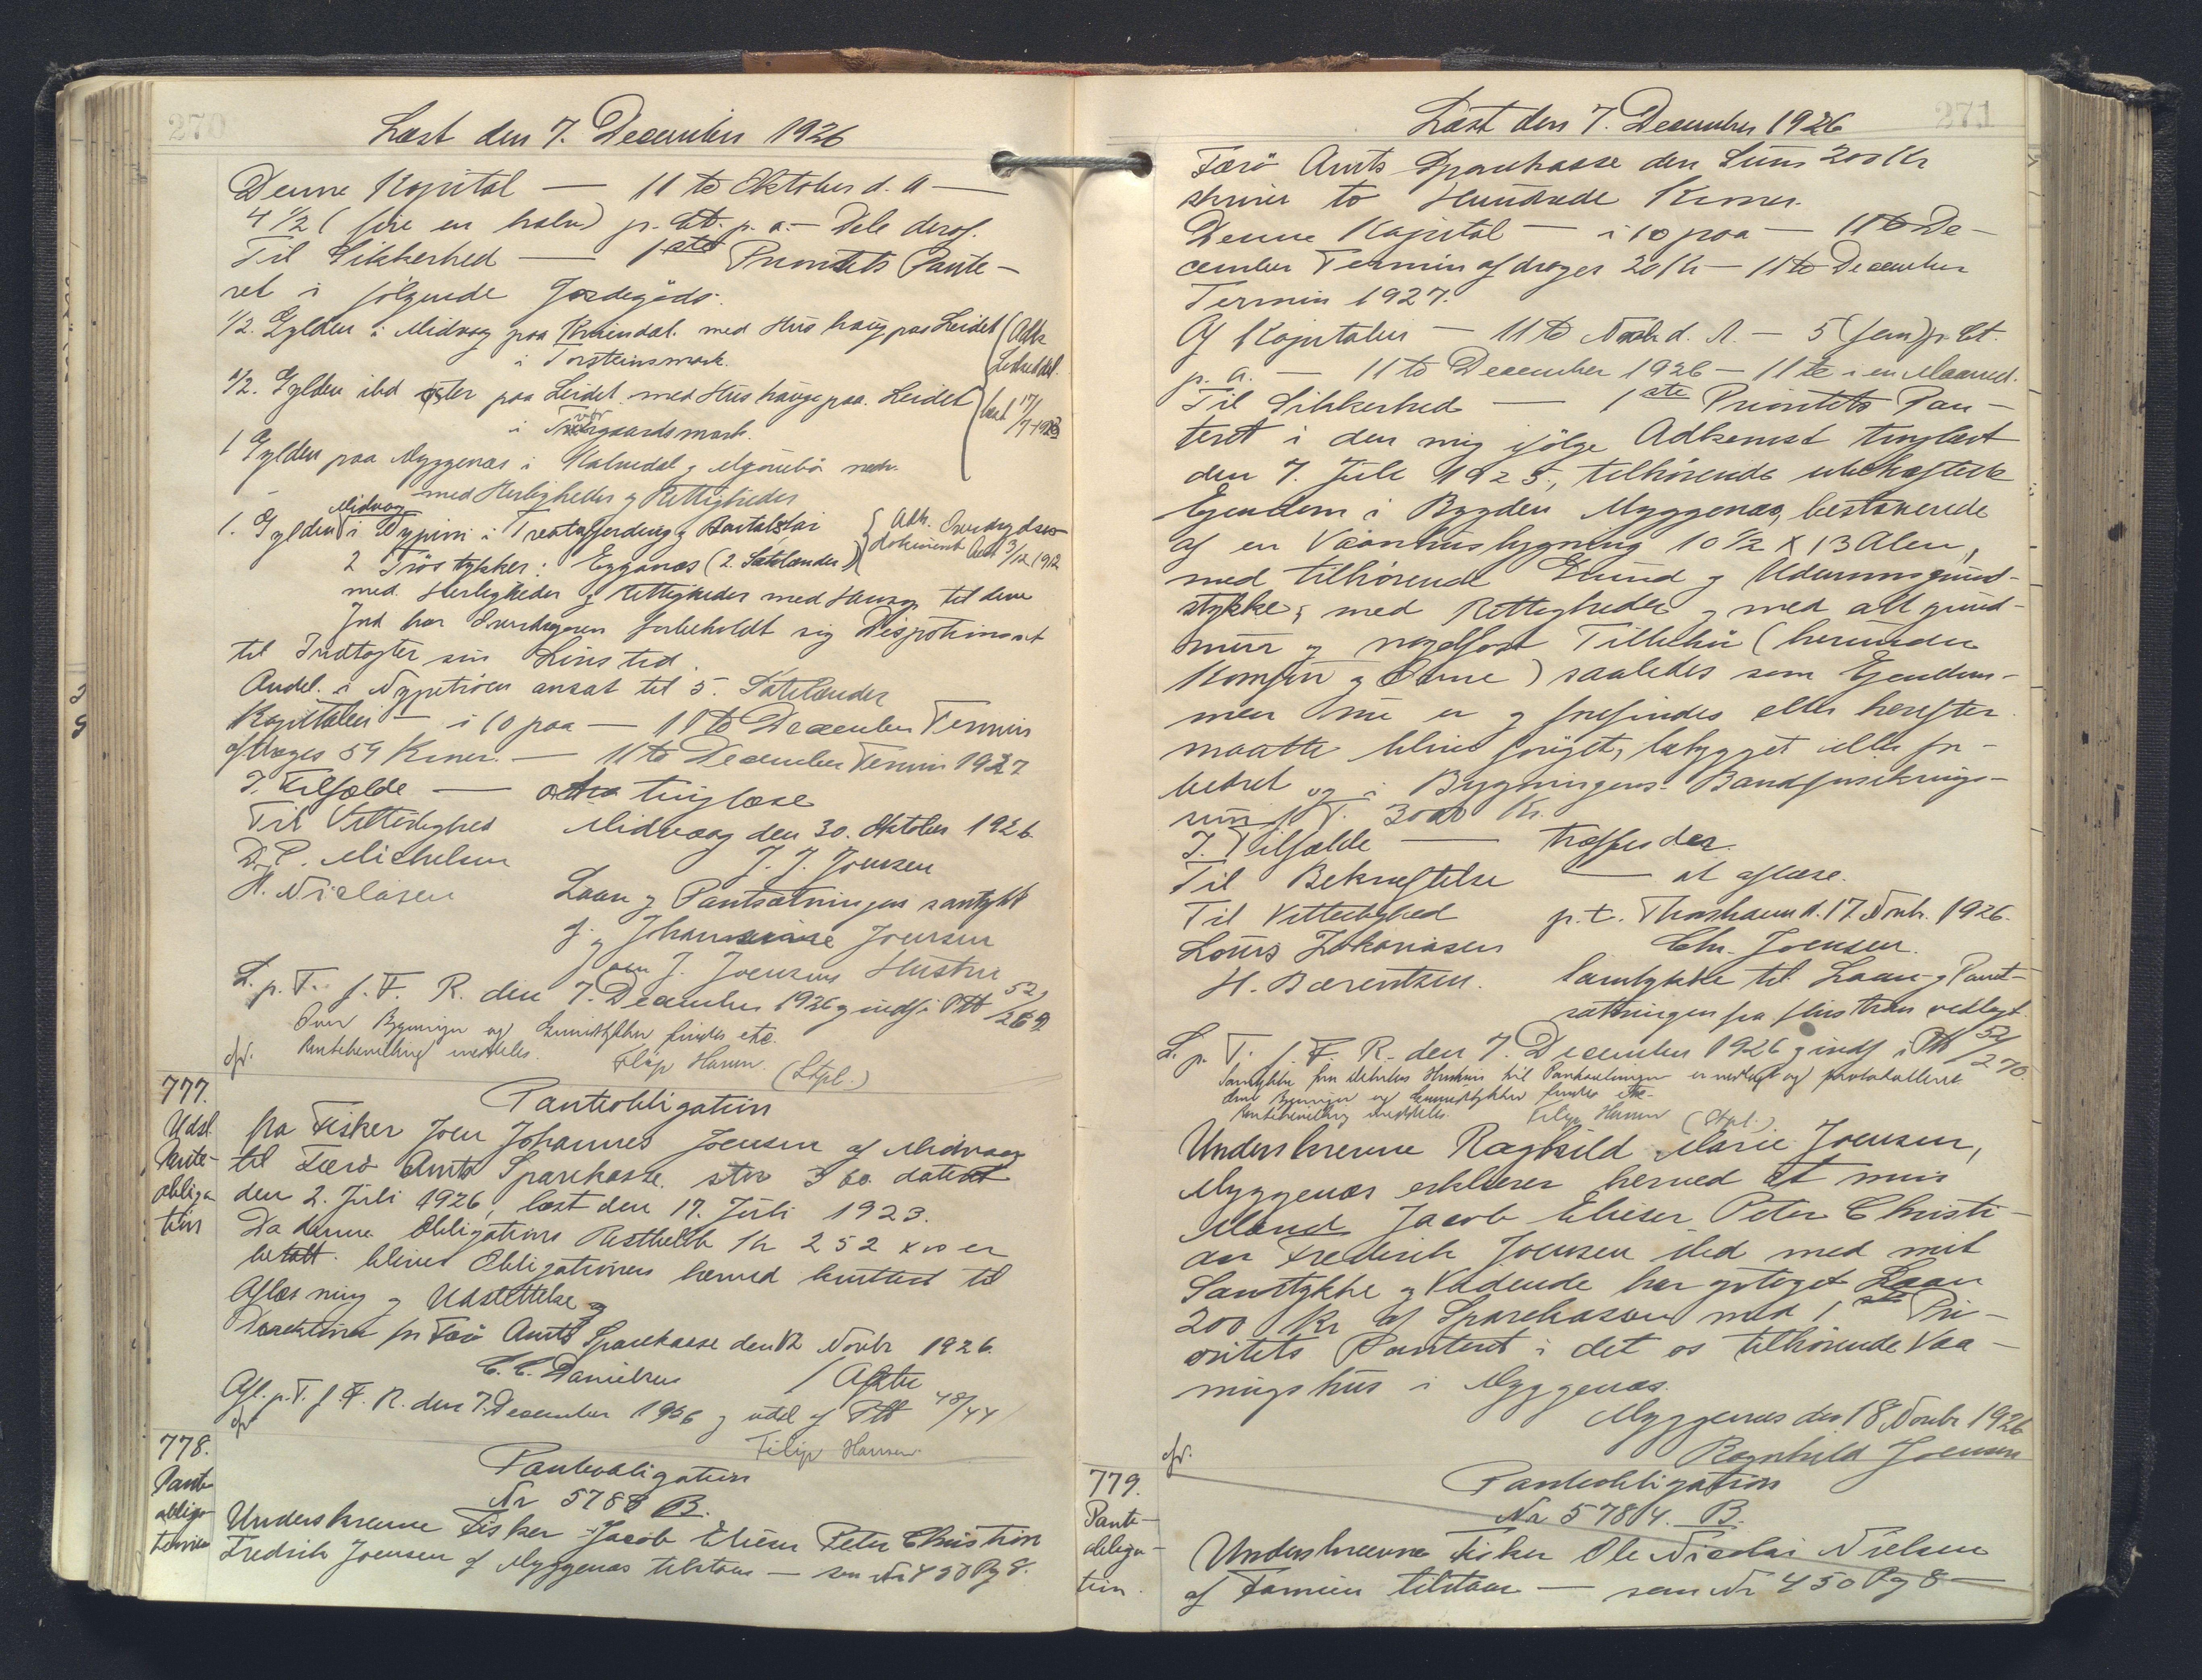 270
Læst den 7. December 1926
Denne Kapital — 11te Oktober d. A —
4 1/2 ( fire en halv) pr. Ct. p. a. — Dele deraf.
Til Sikkerhed — 1ste Prioritets Pante-
ret i følgende Jordegods:
1/2. Gylden i Midvaag paa Kvaindal. med Hus haug paa Leidet
i Torsteinsmark.
(Adk
1/2. Gylden ibd øster paa Leidet. med Hus hauge paa Leidet
læst 17/7 1923
i gaardsmark.
1 Gylden paa Myggenæs i Kalvedal og nedr.
med Herligheder og Rettigheder
Midvaag
1. Gylden i i og
Adk. dokument læst 3/12 1912
2 Trøstykker: Eyganæs (2. Sætelænder)
med Herligheder og Rettigheder med Haugr til denne
Jord har forbeholdt sig Dispotionsret
til Indtægter sin Livs tid.
Andel. i ansat til 5. Sætelænder
Kapitalen — i 10 paa — 11te December Termin
afdrages 54 Kroner. — 11te December Termin 1927
I. Tilfælde — tinglæse
Til Vitterlighed Midvaag den 30. Oktober 1926.
D. P. Michelsen J. J. Joensen
H. Niclasen Laan og Pantsætningen samtykt
af Joensen
Joen J. Joensens Hustru
L. p. T. f. F. R. den 7. December 1926 og indf i Ptt 52/269
Over Bygninger og Grundstykker findes etc.
Rentebevilling meddeles. Filip Hansen. (Stpl.)
cfr.
777.
Udsl.
Pante-
obliga
tion
Panteobligation
fra Fisker Joen Johannes Joensen af Midvaag
til Færø Amts Sparekasse. stor 360. dateret
den 2. Juli 1926, læst den 17. Juli 1923.
Da denne Obligations Restbeløb Kr 252 x oo er
betalt. bliver Obligationen herved kvitteret til
Aflæsning og Udslettelse og
Direktionen for Færø Amts Sparekasse den 12 Novbr 1926.
C. C. Danielsen /
Afl. p. T. f. F. R. den 7. December 1926 og udsl af Ptt 48/44
cfr Filip Hansen.
778.
Pante
obliga
tionen
Panteobligation
Nr 5788 B.
Underskrevne Fisker Jacob Elieser Peter Christian
Fredrik Joensen af Myggenæs tilstaar — som Nr 450 Pg 8.
271
Læst den 7. December 1926
Færø Amts Sparekasse den Sum 200 Kr
skriver to Hundrede Kroner.
Denne Kapital — i 10 paa — 11te De-
cember Termin afdrages 20 Kr — 11te December
Termin 1927.
Af Kapitalen — 11te Novbr d. A. — 5 (fem) pr. Ct.
p. a. — 11te December 1926 — 11te i en Maaned.
Til Sikkerhed — 1ste Prioritets Pan-
teret i den mig ifølge Adkomst tinglæst
den 7. Juli 1925, tilhørende ubehæftede
Ejendom i Bygden Myggenæs, bestaaende
af en Vaanhusbygning 10 1/2 x 13 Alen,
med tilhørende Grund og Uderomsgrund-
stykke, med Rettigheder og med alt grund-
mur og nagelfast Tilbehør (herunder
Komfur og Ovne) saaledes som Ejendom-
men nu er og forefindes eller herefter
maatte blive forøget, bebygget eller for-
bedret og i Bygningens Brandforsikrings-
sum p. T. 3000 Kr.
I. Tilfælde — træffes der.
Til Bekræftelse — at aflæse.
Til Vitterlighed p. t. Thorshavn d. 17 Novbr. 1926.
Louis Zakariasen Chr. Joensen.
H. Bærentsen. Samtykke til Laan og Pant-
sætningen fra Hustruen vedlagt.
L. p. T. f. F. R. den 7. December 1926 og indf i Ptt 52/270.
Samtykke fra Debitors Hustru til Pantsætningen er vedlagt og protokolleret
Over Bygninger og Grundstykker findes etc.
Rentebevilling meddeles. Filip Hansen (Stpl.)
Underskrevne Ragnhild Marie Joensen,
Myggenæs erklærer herved at min
Mand Jacob Elieser Peter Christi-
an Fredrik Joensen ibd med mit
Samtykke og Vidende har optaget Laan
200 Kr af Sparekassen med 1ste Pri-
oritets Panteret i det os tilhørende Vaa-
ningshus i Myggenæs.
Myggenæs den 18 Novbr 1926
cfr. Ragnhild Joensen
779.
Pante-
obliga-
tion.
Panteobligation
Nr 5784. B.
Underskrevne Fisker Ole Nicolai Nielsen
af Famien tilstaar — som Nr 450 Pg 8 —